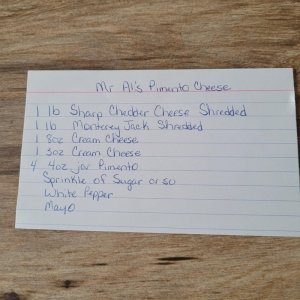 Mr Al's Pimento Cheese
1 lb Sharp Chedder Cheese Shredded
1 lb Monterey Jack Shredded
1 8oz Cream Cheese
1 3oz Cream Cheese
4 4oz jar Pimento
Sprinkle of Sugar or so
White Pepper
Mayo